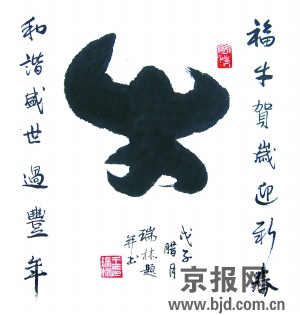 福牛賀歲迎新春
和諧盛世過豐年
戊子
臘月
瑞林題
并书
京报网
www.bjd.com.cn